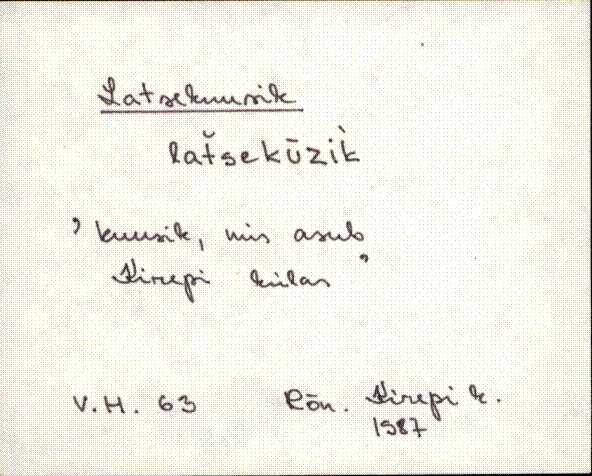 Latsekuusik
lat̆sekūzik̀
’ kuusik, mis asub
Kirepi külas ’
V.H. 63 Rõn. Kirepi k.
1987